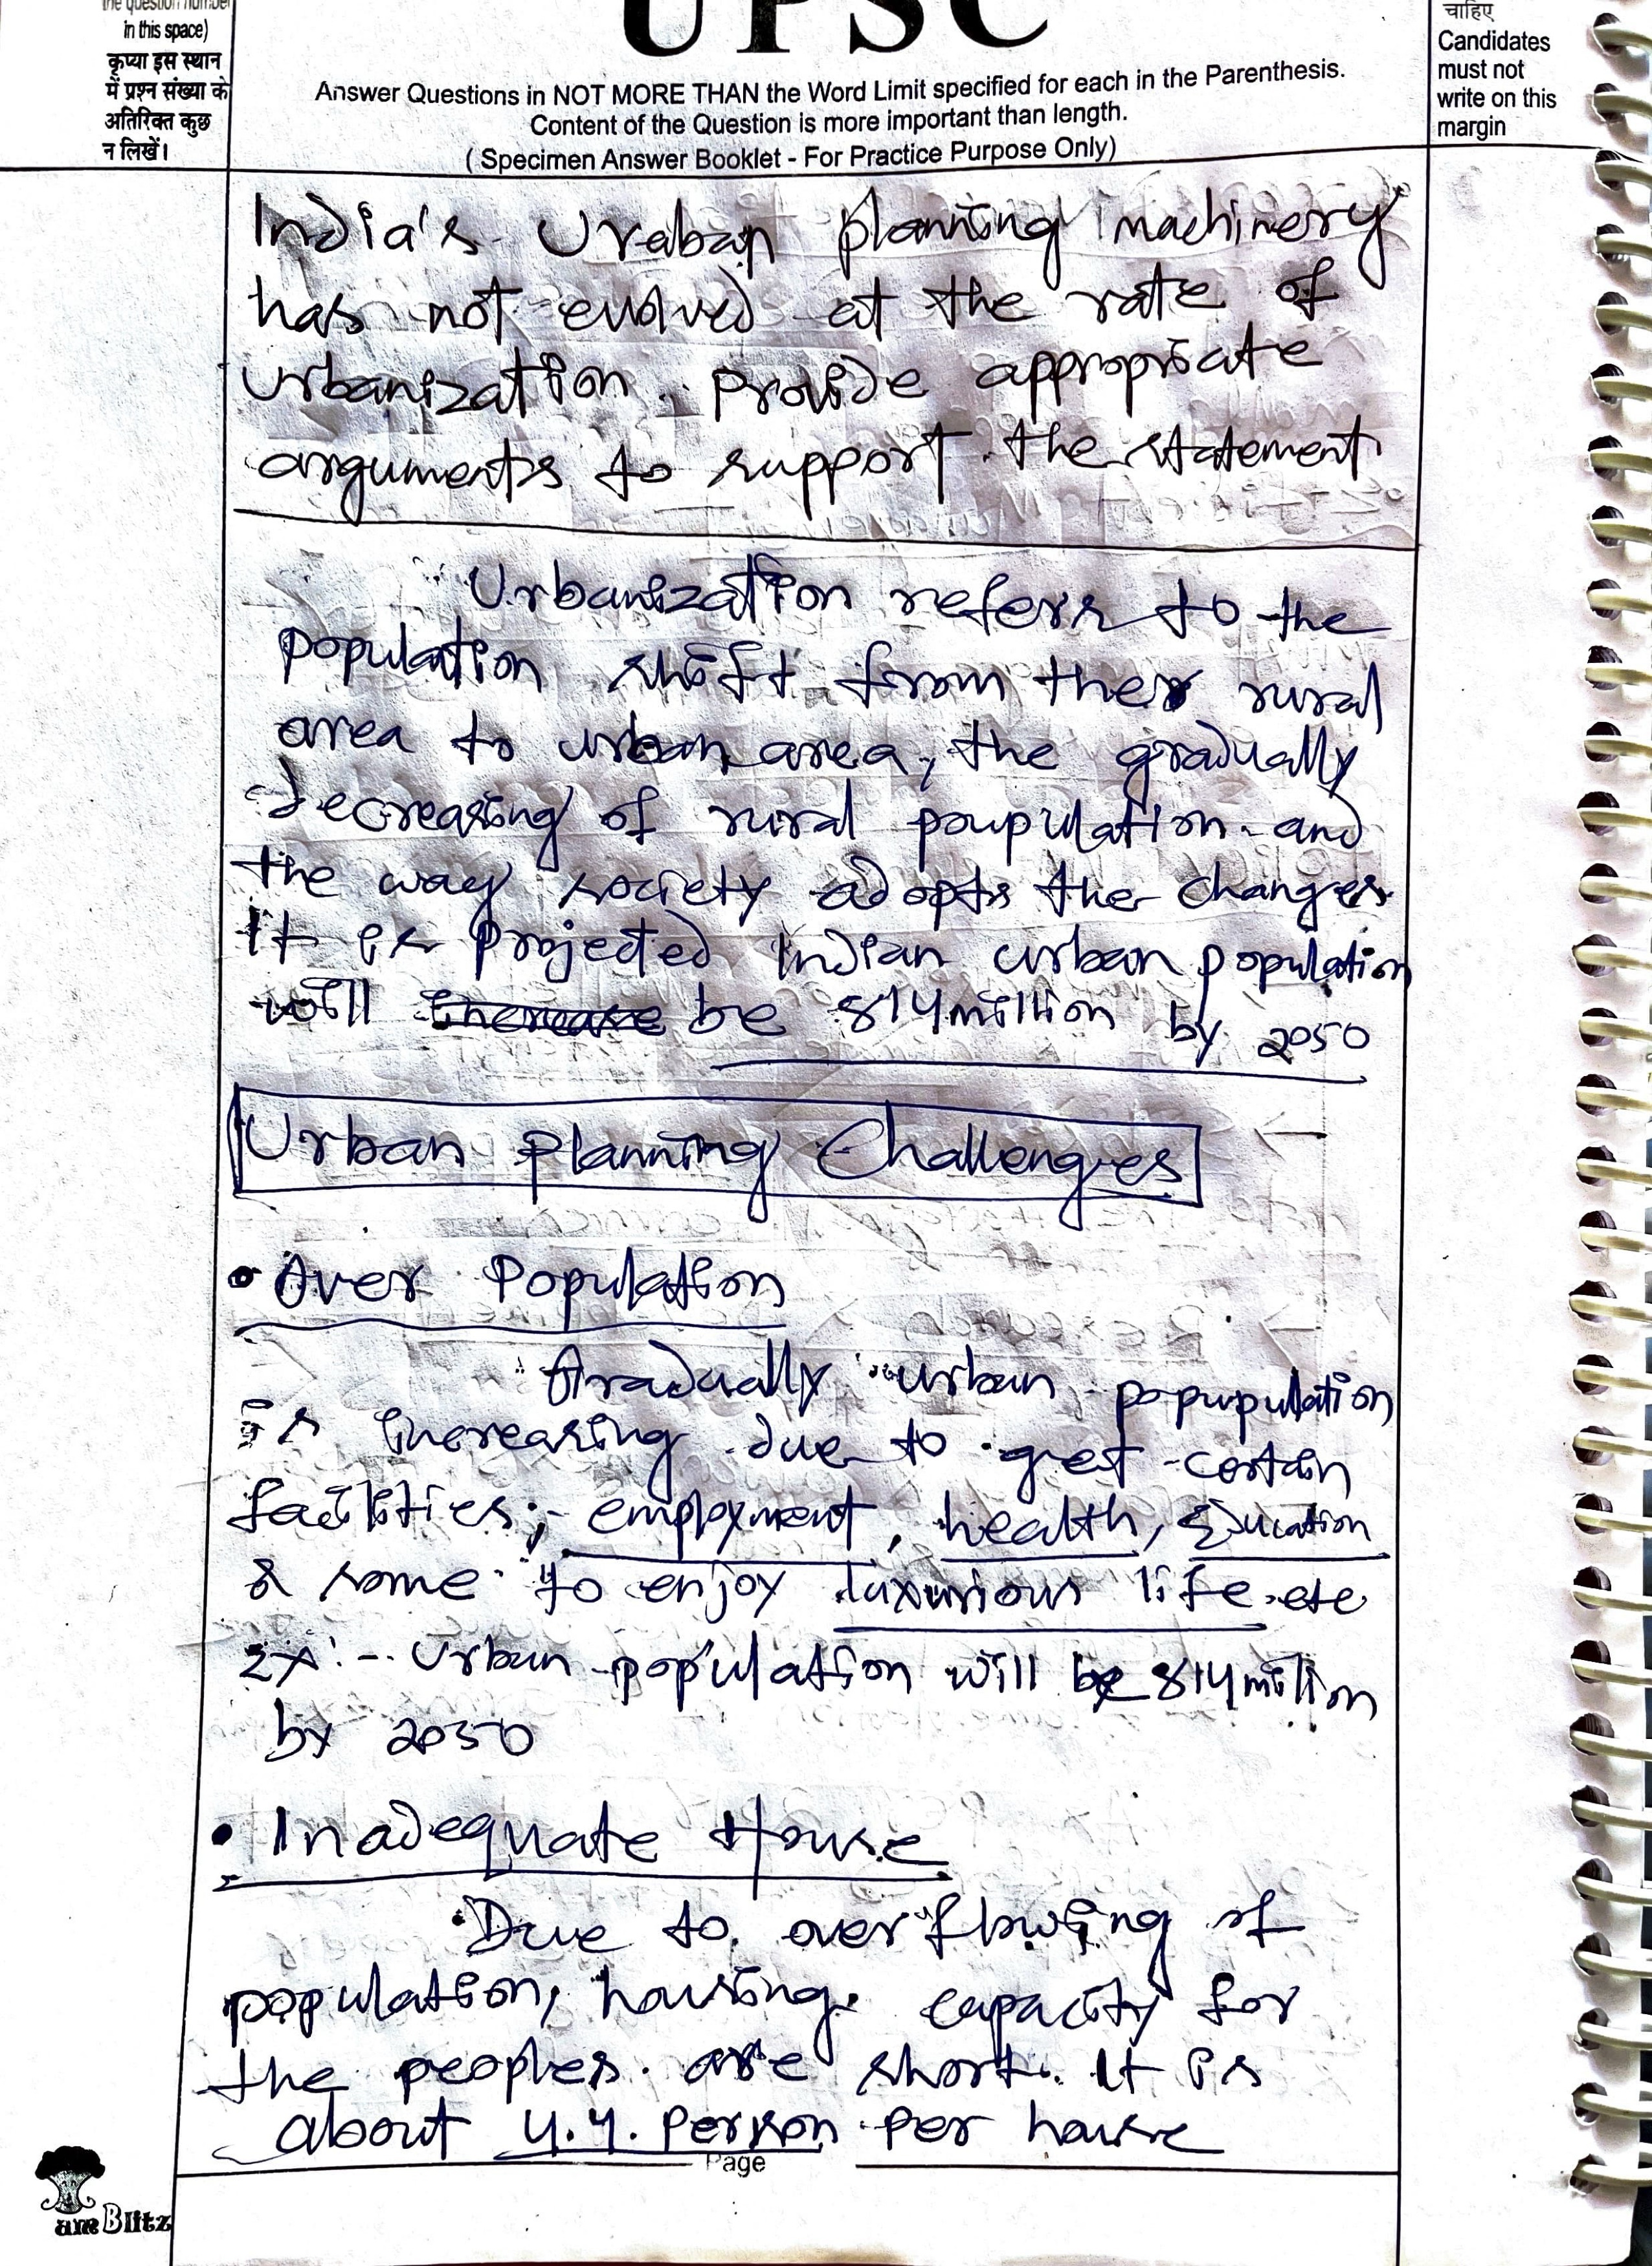 the question number
in this space)
कृप्या इस स्थान
में प्रश्न संख्या के
अतिरिक्त कुछ
न लिखें।
UPSC
Answer Questions in NOT MORE THAN the Word Limit specified for each in the Parenthesis.
Content of the Question is more important than length.
( Specimen Answer Booklet - For Practice Purpose Only)
चाहिए
Candidates
must not
write on this
margin
India's Uraban planning machinery
has not evolved at the rate of
urbanization. Provide appropriate
arguments to support the statement.
Urbanization refers to the
population shift from the rural
area to urban area, the gradually
decreasing of rural poupulation and
the way society adopts the changes.
It is projected Indian urban population
will increase be 814 million by 2050
Urban planning Challenges
• Over Population
Gradually urban popupulation
is increasing due to get certain
facilities;- employment, health, Education
& some to enjoy luxurious life. etc
Ex:- Urban population will be 814 million
by 2050
• Inadequate House
Due to overflowing of
population, housing capacity for
the peoples are short. It is
about 4.4. person per house
Page
Blitz